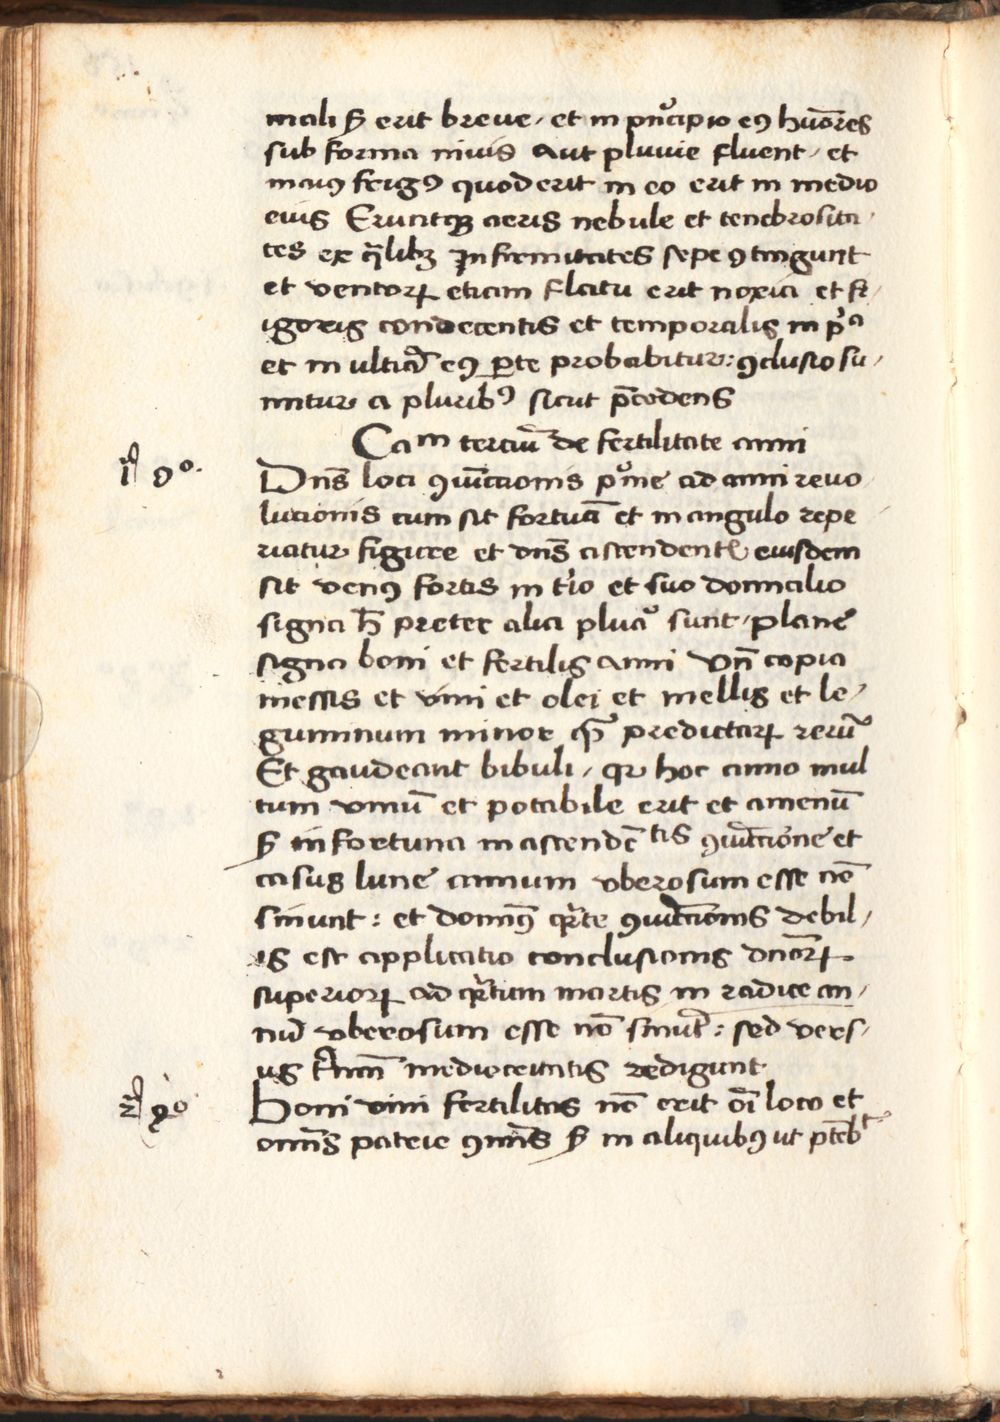 mali s₎ erit breve, et in pn͛cipio eꝯ hu͞ores
sub forma nivis Aut pluvie fluent, et
maiꝯ frigꝯ quod erit in eo erit in medio
eius Erūtqꝫ aeris nebule et tenebrosita,
tes ex q̄libꝫ Infirmitates sepe ꝯtingunt
et ventorꝝ etiam flatu erit noxia et fr,
igoris condecentis et temporalis in pᵃ
et in ultiā eꝯ ꝑte probabitur: ꝯclusio su,
mitur a pluribꝯ sicut p̄cedens
Caᵐ terciū de fertilitate anni
1ᵃ ꝯᵒ.
Dn̄s loci ꝯiūctionis pͥme ad anni revo
lucionis cum sit fortūa et in angulo repe
riatur figure et dn̄s ascendentꝭ eiusdem
sit venꝯ fortis in tͥno et suo domicilio
signa h̄ preter alia pluͣ sunt, plane
signa boni et fertilis anni Vn̄ copia
messis et vini et olei et mellis et le,
guminum minor qᷓ predictarꝝ rerū
Et gaudeant bibuli, qꝛ hoc anno mul
tum vinū et potabile erit et amenū
s₎ infortuna in ascendētis ꝯiūctione et
casus lune annum uberosum esse nō
sinunt: et dominꝯ qͣrte ꝯiūctionis debil,
is est applicatio conclusionis dn̄orꝝ
superiorꝝ ad qͣrtum martis in radice an,
nū uberosum esse nō sinūt: sed vers,
us t͛mīn mediocritatis redigunt
2ᵃ ꝯᵒ
Boni vini fertilitas nō erit oī loco et
omīs patrie ꝯmīs s₎ in aliquibꝯ ut ptēbᵗ